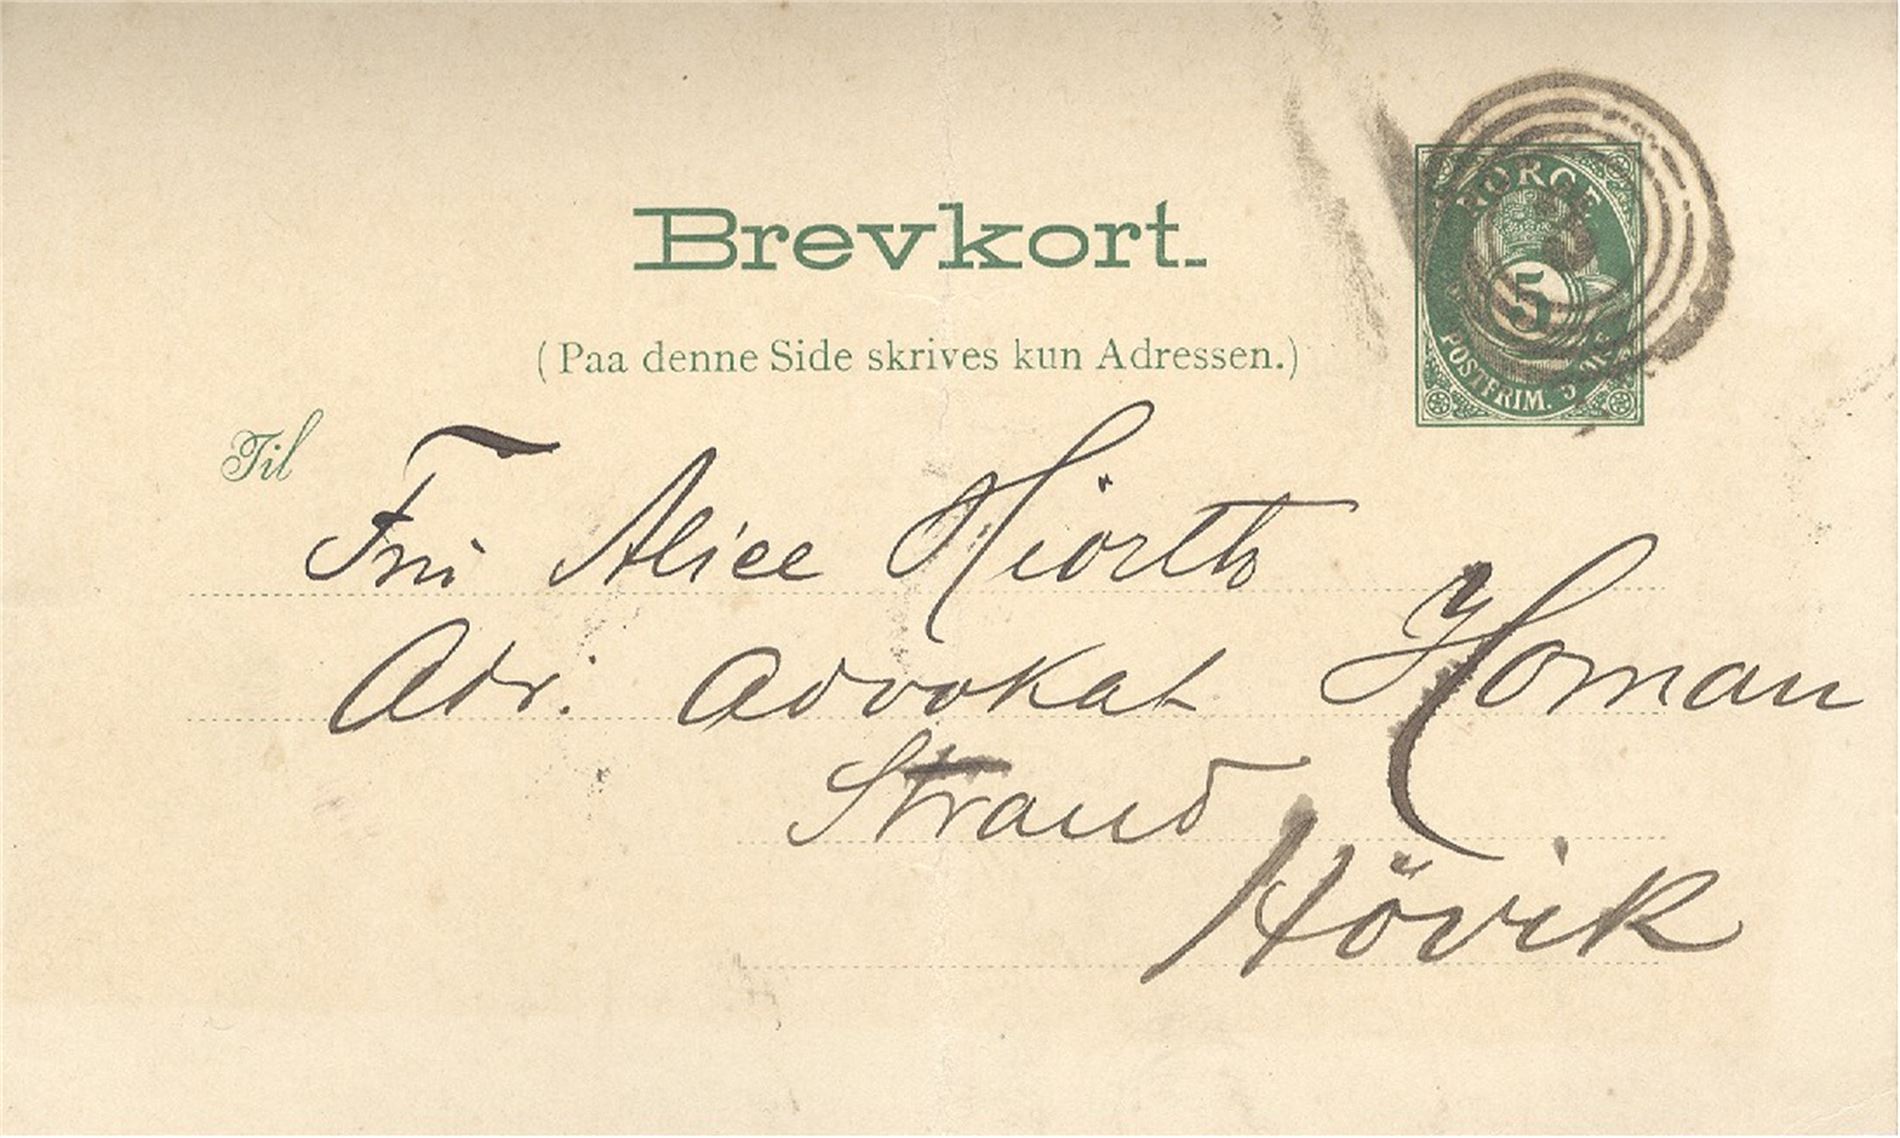 Brevkort.
NORGE
5
POSTFRIM. 5 ØRE
(Paa denne Side skrives kun Adressen.)
Til
Fru Alice Hiorth
Adr. Advokat Homan
Strand
Hövik